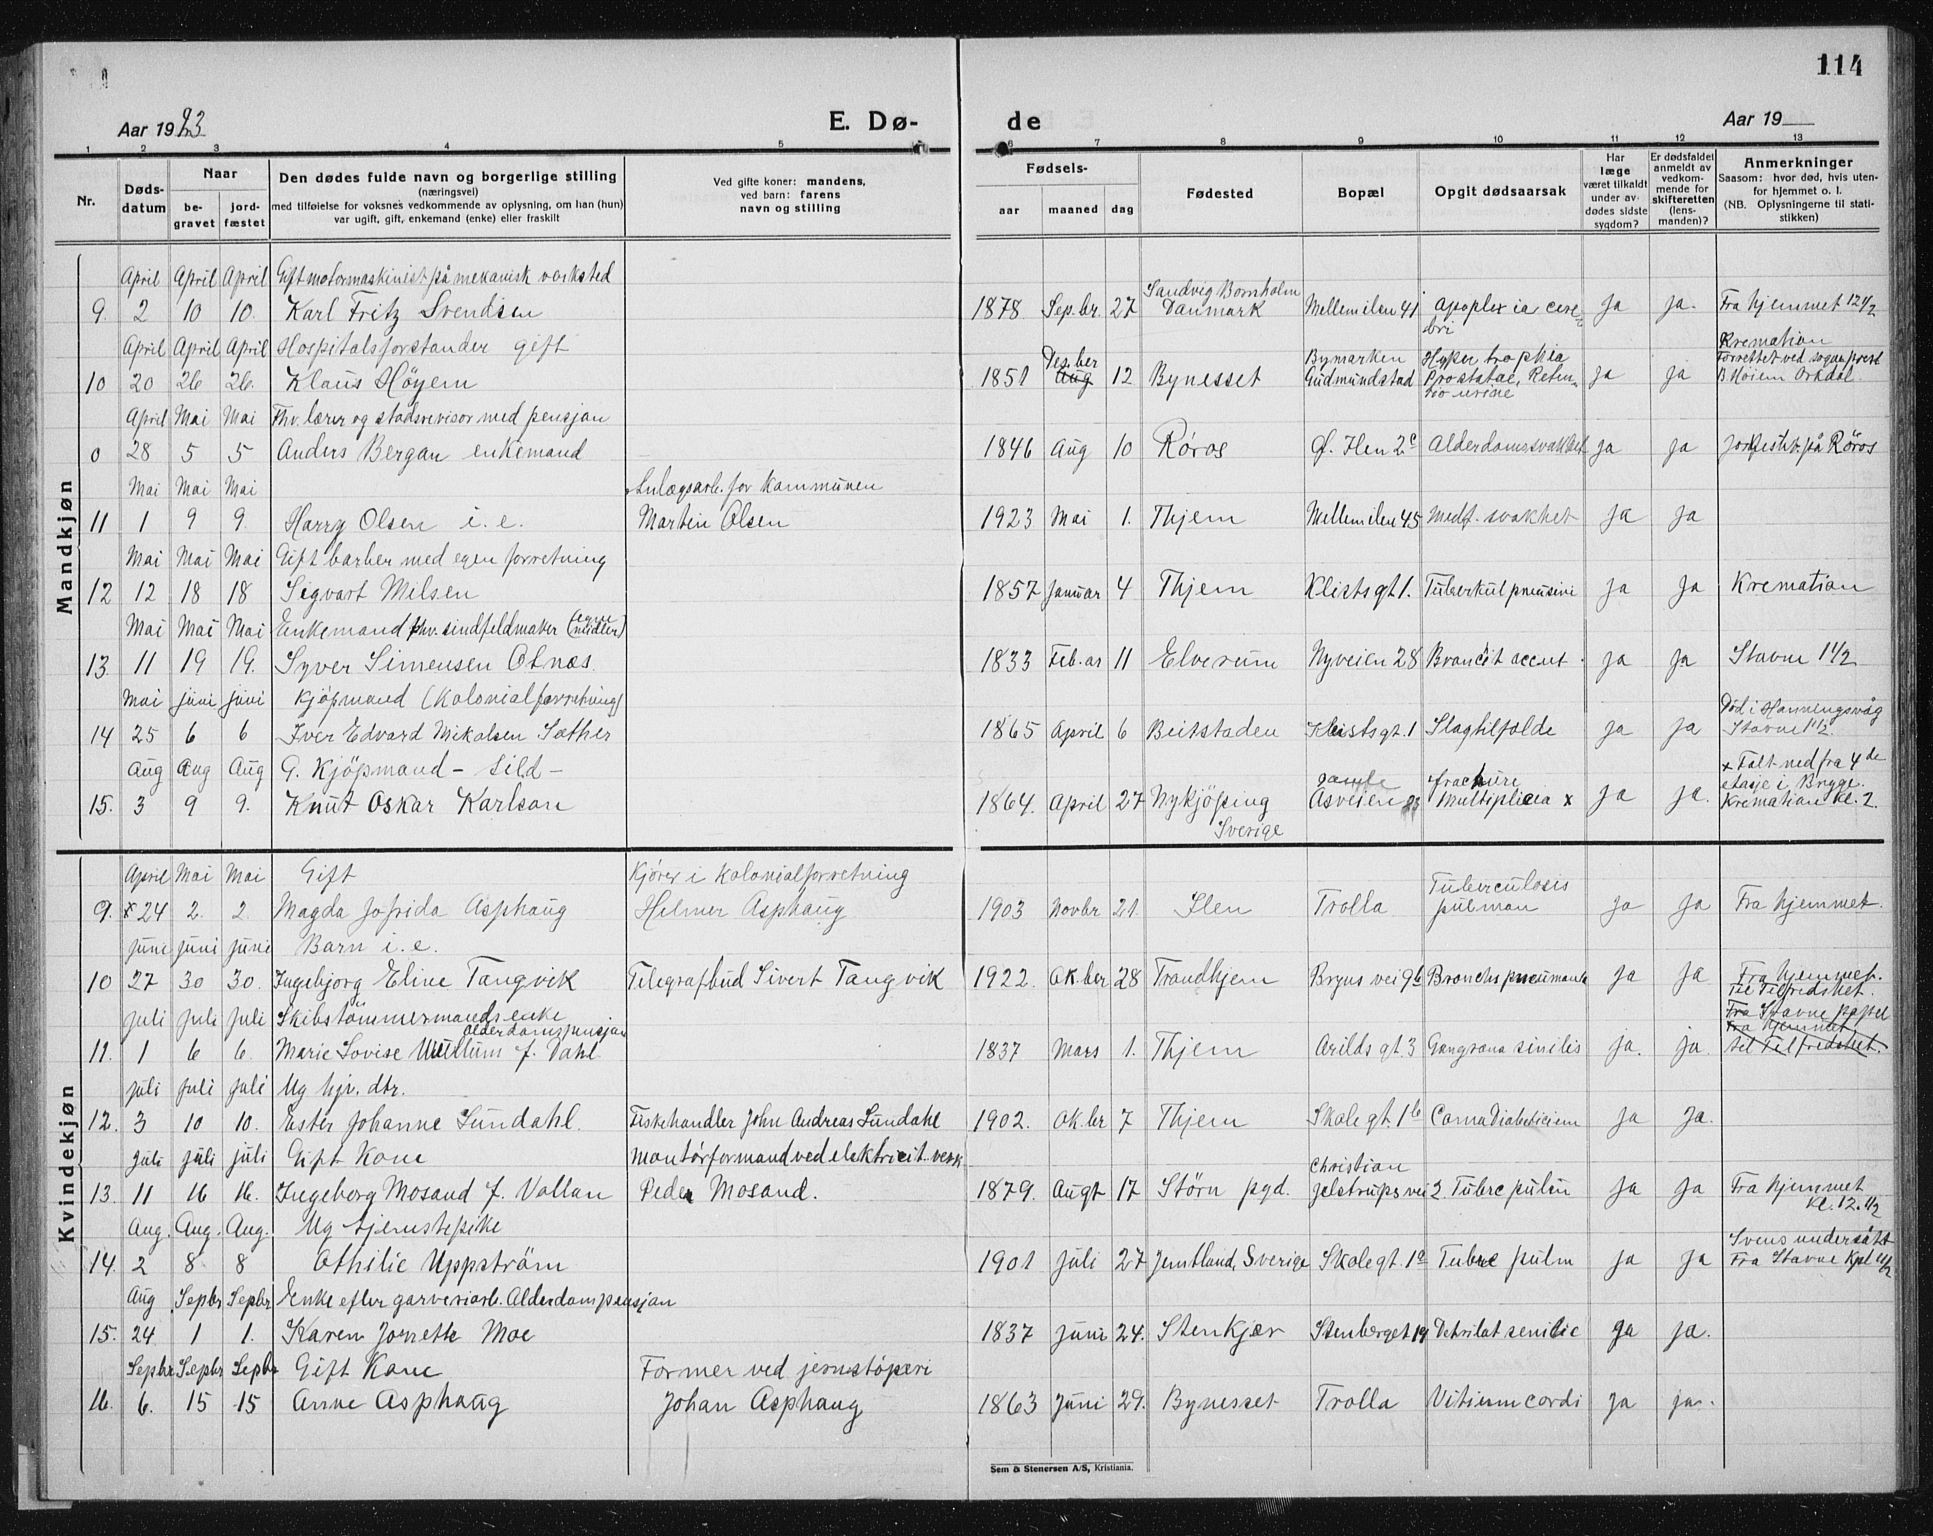 114
Aar 1923
E. Dø-
de
Aar 19
1 2 3 4 5 6 7 8 9 10 11 12 13
Nr.
Døds-
datum
Naar
be-
gravet
jord-
fæstet
Den dødes fulde navn og borgerlige stilling
(næringsvei)
med tilføielse for voksnes vedkommende av oplysning, om han (hun)
var ugift, gift, enkemand (enke) eller fraskilt
Ved gifte koner: mandens,
ved barn: farens
navn og stilling
Fødsels-
aar maaned dag
Fødested
Bopæl
Opgit dødsaarsak
Har
læge
været tilkaldt
under av-
dødes sidste
sygdom?
Er dødsfaldet
anmeldt av
vedkom-
mende for
skifteretten
(lens-
manden)?
Anmerkninger
Saasom: hvor død, hvis uten-
for hjemmet o. l.
(NB. Oplysningerne til stati-
stikken)
Mandkjøn
April April April Gift motormaskinist på mekanisk verksted
9. 2 10 10. Karl Fritz Svendsen 1878 Sep.br. 27 Sandvig Bornholm Danmark Mellemilen 41 Apoplexia cerebri ja ja. Fra hjemmet 12 1/2
April April April Hospitalsforstander gift
10 20 26 26. Klaus Höyem 1851 Aug Des.ber 12 Bynesset Bymarken Gudmundstad Hypertrophia Prostatae, Retentio urine ja ja Kremation Forrettet ved sogneprest B. Höiem Orkdal
April Mai Mai Fhv. lærer og stadsrevisor med pensjon
0 28 5 5 Anders Bergan enkemand 1846 Aug 10 Røros Ø. Ilen 2c Alderdomssvakhet ja ja Jordfestet på Røros
Mai Mai Mai Anlægsarb. for kommunen
11 1 9 9. Harry Olsen i. e. Martin Olsen 1923 Mai 1. Thjem Mellemilen 45 Medf. svakhet ja ja
Mai Mai Mai Gift barber med egen forretning
12 12 18 18 Sigvart Nilsen 1857 Januar 4 Thjem Klistsgt 1. Tuberkul pneusini ja ja Kremation
Mai Mai Mai Enkemand fhv. sindfeldmaker (egne midler)
13 11 19 19. Syver Simensen Otnæs 1833 Feb.ar 11 Elverum Nyveien 28 Broncit accut. ja ja Stavne 1 1/2
Mai juni juni Kjøpmand (Kolonialforretning)
14 25 6 6 Iver Edvard Mikalsen Sæther 1865 April 6 Beitstaden Kleistsgt. 1 Slagtilfælde ja ja Død i Honningsvåg Stavne 1 1/2
Aug Aug Aug G. Kjöpmand - Sild -
15. 3 9 9. Knut Oskar Karlson 1864. April 27 Nykjöping Sverige gamle Åsveien 23 fracture Multiplicia x ja ja. x Falt ned fra 4de etasje i Brygge. Kremation kl. 2.
Kvindekjøn
April Mai Mai Gift Kjører i kolonialforretning
9. x 24 2. 2. Magda Jofrida Asphaug Helmer Asphaug 1903 Novbr 21. Ilen Trolla Tuberculosis pulmon ja ja Fra hjemmet.
juni juni juni Barn i. e.
10 27 30 30. Ingebjorg Eline Tangvik Telegrafbud Sivert Tangvik 1922. Ok.ber 28 Trondhjem Bryns vei 9b Bronchs pneumonia ja ja Fra hjemmet. til Tilfredshet.
juli juli juli Skibstömmermands enke Alderdomspensjon
11. 1 6 6. Marie Lovise f. Dahl 1837 Mars 1. Thjem Arilds gt. 3 Gangræna sinilis ja. ja. Fra Stavne kapel Fra hjemmet til Tilfredshet.
juli juli juli Ug hjv. dtr.
12. 3 10 10. Ester Johanne Sundahl. Fiskehandler John Andreas Sundahl 1902. Ok.ber 7 Thjem Skolegt. 1b Coma Diabeticiem ja ja.
juli juli juli Gift Kone Montørformand ved elektricit. verk
13. 11 16 16. Ingeborg Mosand f. Vollan Peder Mosand. 1879. Augt 17 Störn pgd. Christian Jelstrupsvei 2. Tubrc pulm ja ja Fra hjemmet kl. 12. 1/2
Aug. Aug. Aug. Ug tjenstepike
14. 2 8 8 Othilie Uppström 1901 juli 27 Jemtland, Sverige Skolegt. 1a Tubrc pulm ja ja Svens undersått Fra Stavne Kpl 1 1/2
Aug Sepbr Sepbr Enke efter garveriarb. Alderdompensjon
15. 24 1 1. Karen Jonette Moe 1837 juni 24. Stenkjær Stenberget 19 Detrilat senilic ja ja.
Sepbr Sepbr Sepbr Gift Kone Former ved jernstöperi
16. 6. 15 15 Anne Asphaug Johan Asphaug 1863 Juni 29. Bynesset Trolla Vitium cordi ja ja.
Sem & Stenersen A/S, Kristiania.